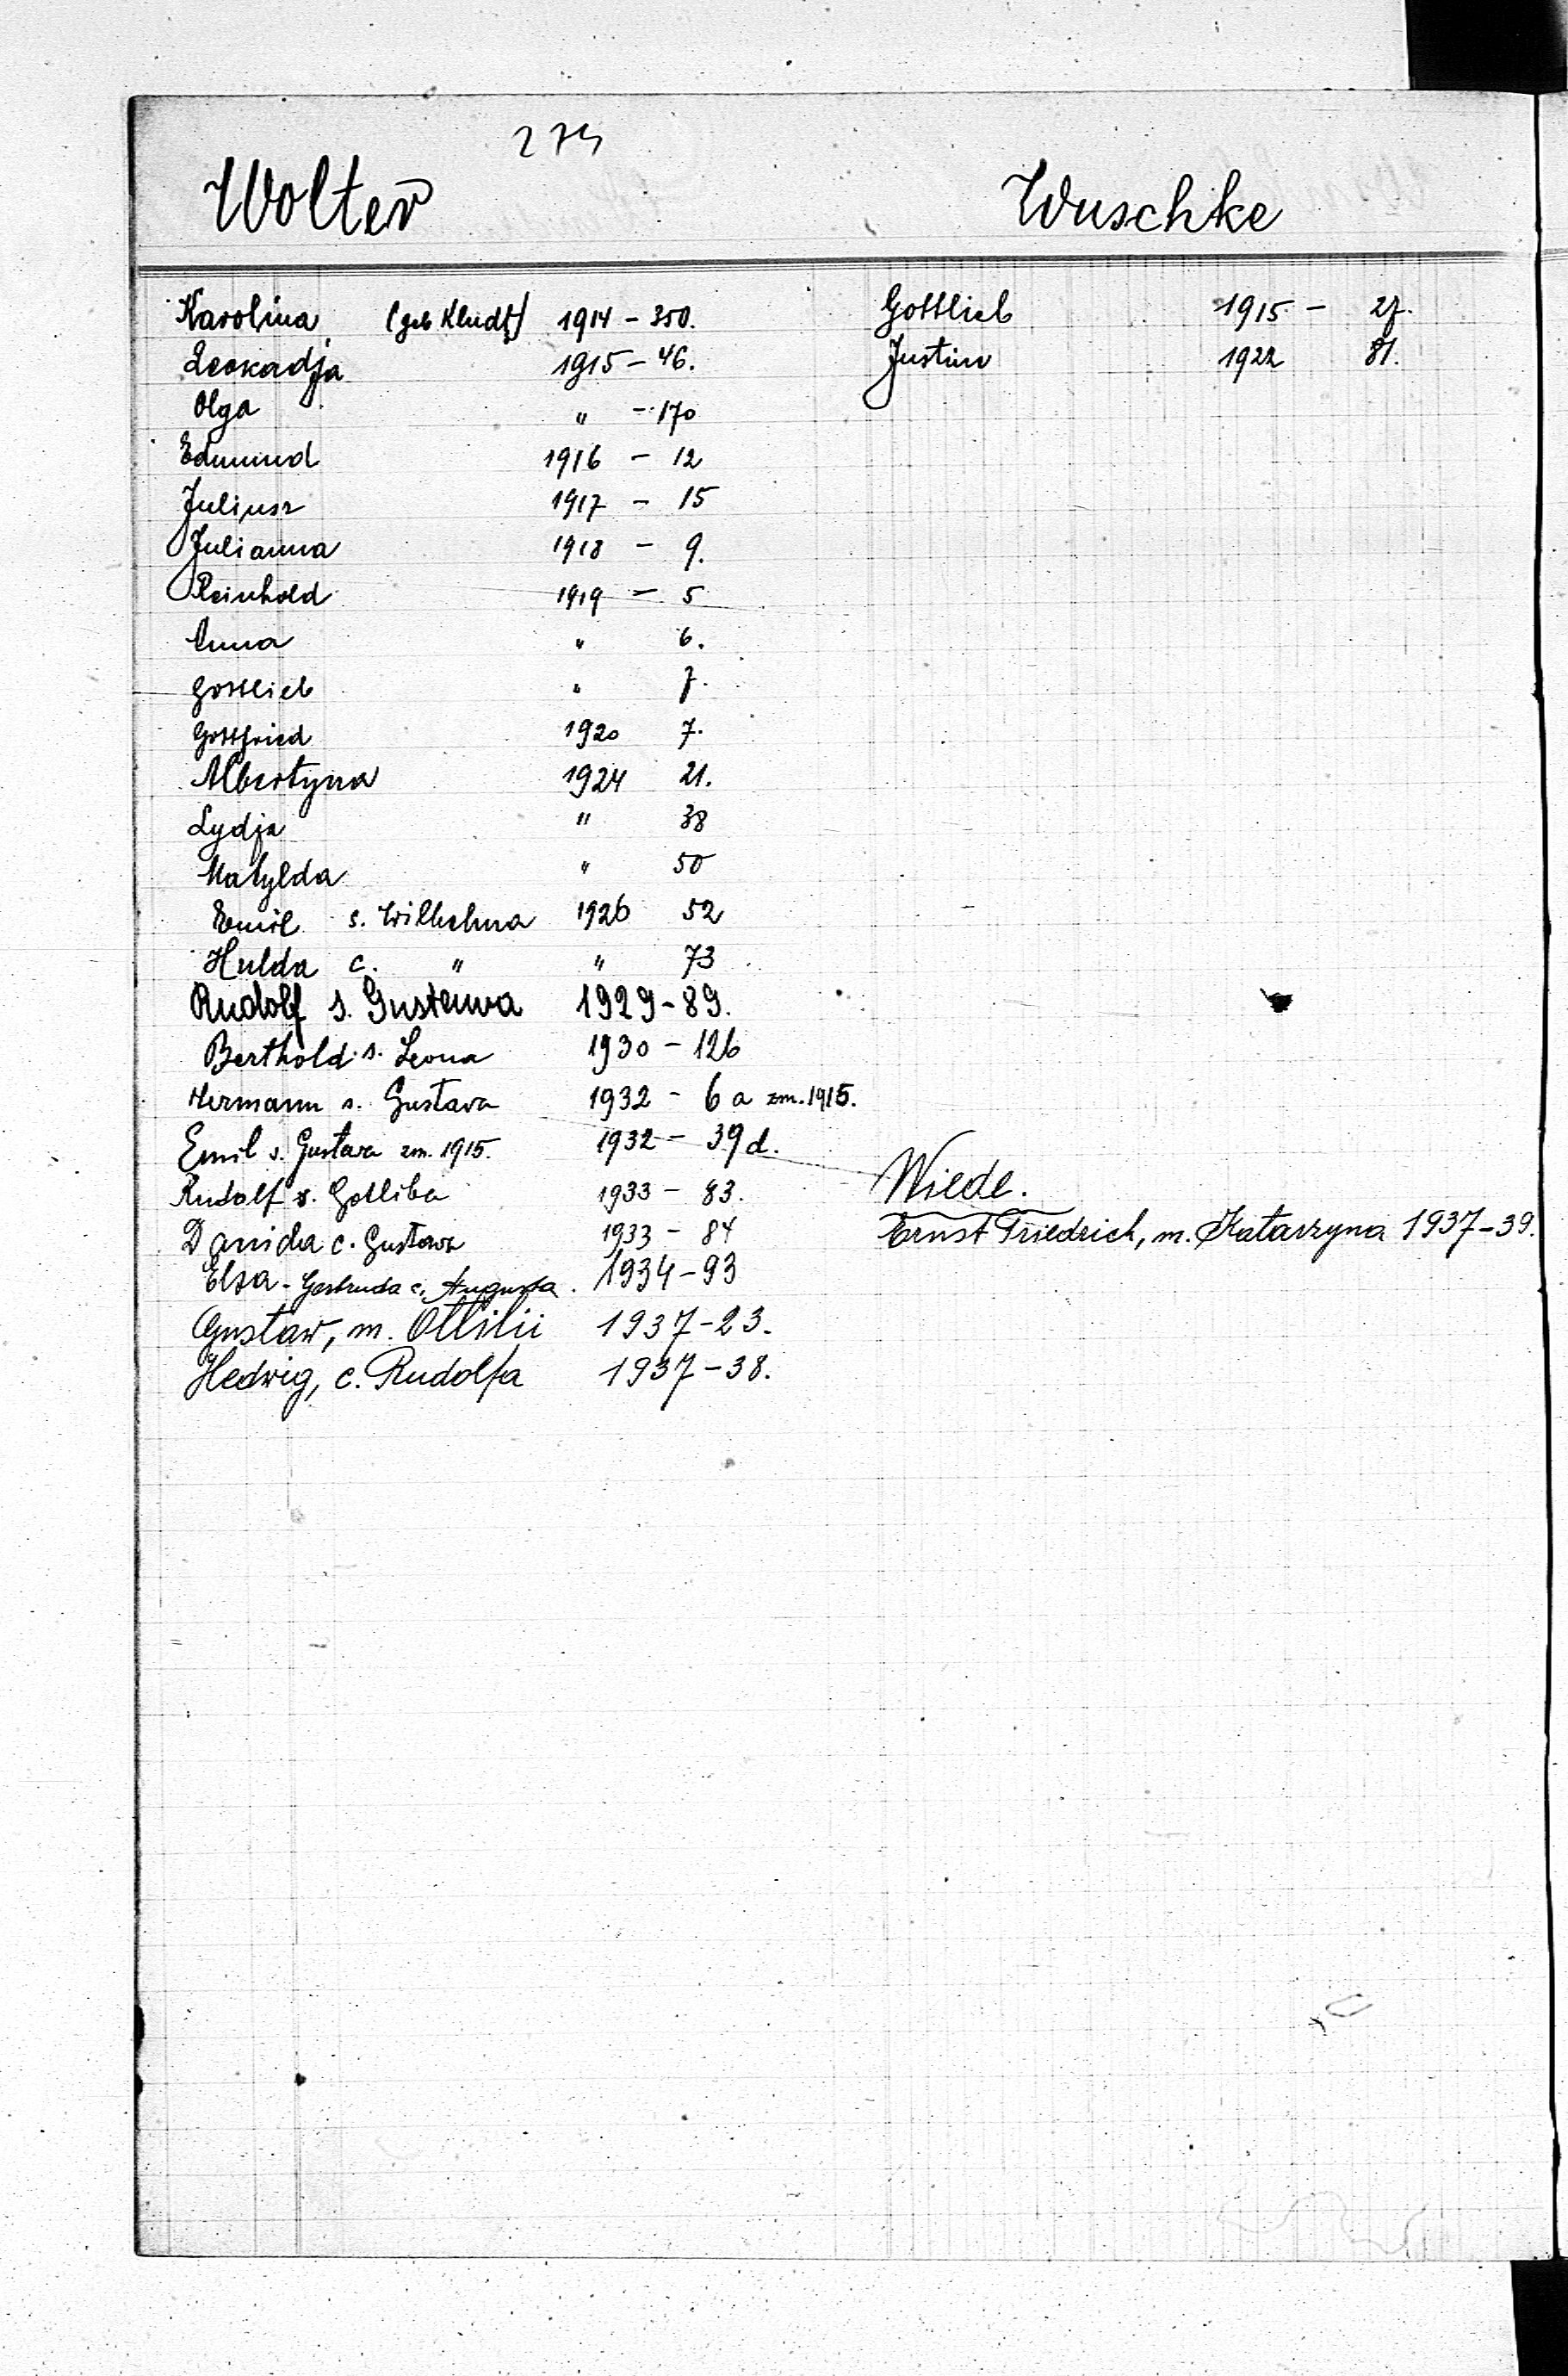 274
Wolter
Karolina (geb Kludt) 1914 - 350.
Leokadja 1915 - 46.
Olga " - 170
Edmund 1916 - 12
Juliusz 1917 - 15
Julianna 1918 - 9.
Reinhold 1919 - 5
Anna " 6.
Gottlieb " 7.
Gottfried 1920 7.
Albertyna 1924 21.
Lydja " 38
Matylda " 50
Emil s. Wilhelma 1926 52
Hulda c. " " 73
Rudolf s. Gustawa 1929 - 89.
Berthold s. Leona 1930 - 126
Hermann s. Gustava 1932 - 6 a zm. 1915.
Emil s. Gustava zm. 1915. 1932 - 39 d.
Rudolf s. Gotliba 1933 - 83.
Danida c. Gustawa 1933 - 84
Elsa - Gertruda c. Augusta. 1934 - 93
Gustaw, m. Ottilii 1937 - 23.
Hedwig, c. Rudolfa 1937 - 38.
Wuschke
Gottlieb 1915 - 27.
Justine 1922 81.
Wiede.
Ernst Friedrich, m. Katarzyna 1937 - 39.